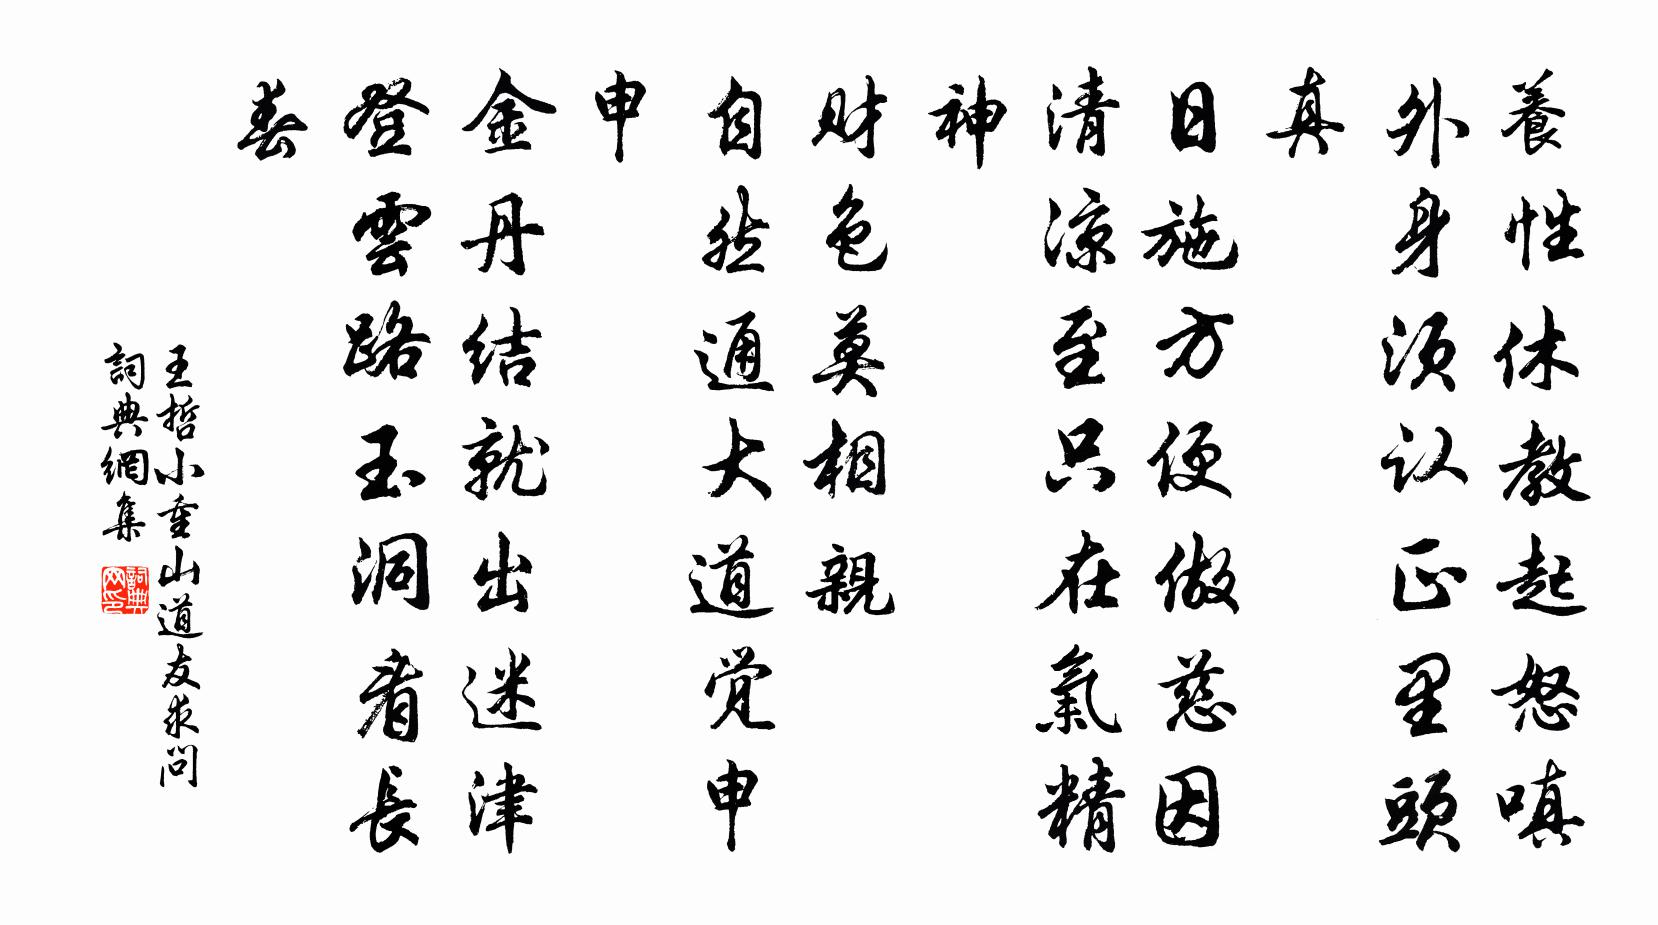 養性休教起怒嗔
外身須认正里頭
真
日施方便做慈因
清涼至只在氣精
神
财色莫相親
自然通大道觉申
申
金丹结就出迷津
登雲路玉洞看長
春
王哲小重山道友求問
詞典網集
詞典网印